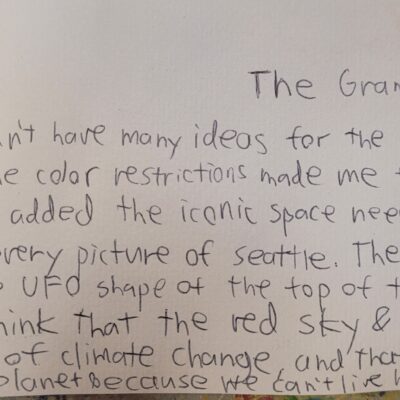 The Gran
n't have many ideas for the
e color restrictions made me
added the iconic space nee
very picture of seattle. The
UFO shape of the top of t
hink that the red sky &
of climate change and that
planet Because we can't live